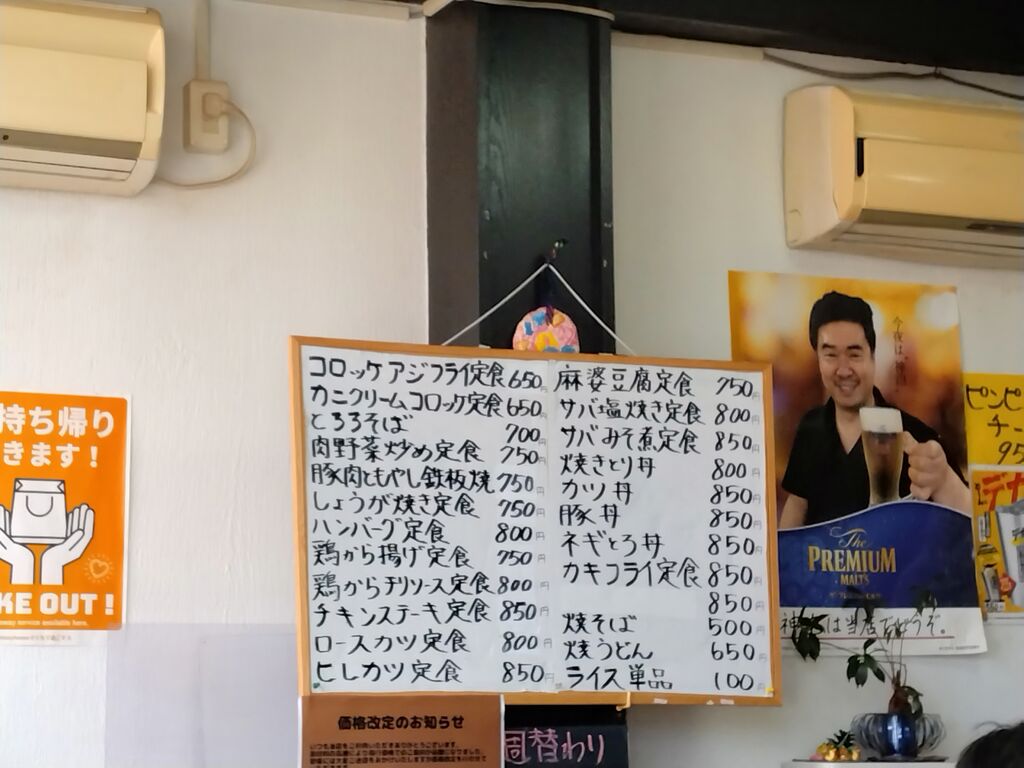 持ち帰り
きます！
KE OUT !
コロッケアジフライ定食 650円
カニクリームコロッケ定食 650円
とろろそば 700円
肉野菜炒め定食 750円
豚肉ともやし鉄板焼 750円
しょうが焼き定食 750円
ハンバーグ定食 800円
鶏から揚げ定食 750円
鶏からチリソース定食 800円
チキンステーキ定食 850円
ロースカツ定食 800円
ヒレカツ定食 850円
麻婆豆腐定食 750円
サバ塩焼き定食 800円
サバみそ煮定食 850円
焼きとり丼 800円
カツ丼 850円
豚丼 850円
ネギとろ丼 850円
カキフライ定食 850円
850円
焼そば 500円
焼うどん 650円
ライス単品 100円
価格改定のお知らせ
いつも当店をご利用いただきありがとうございます。
週替わり
今夜は、
The
PREMIUM
MALT'S
は当店でどうぞ。
ピンピ
チー
95
デカ